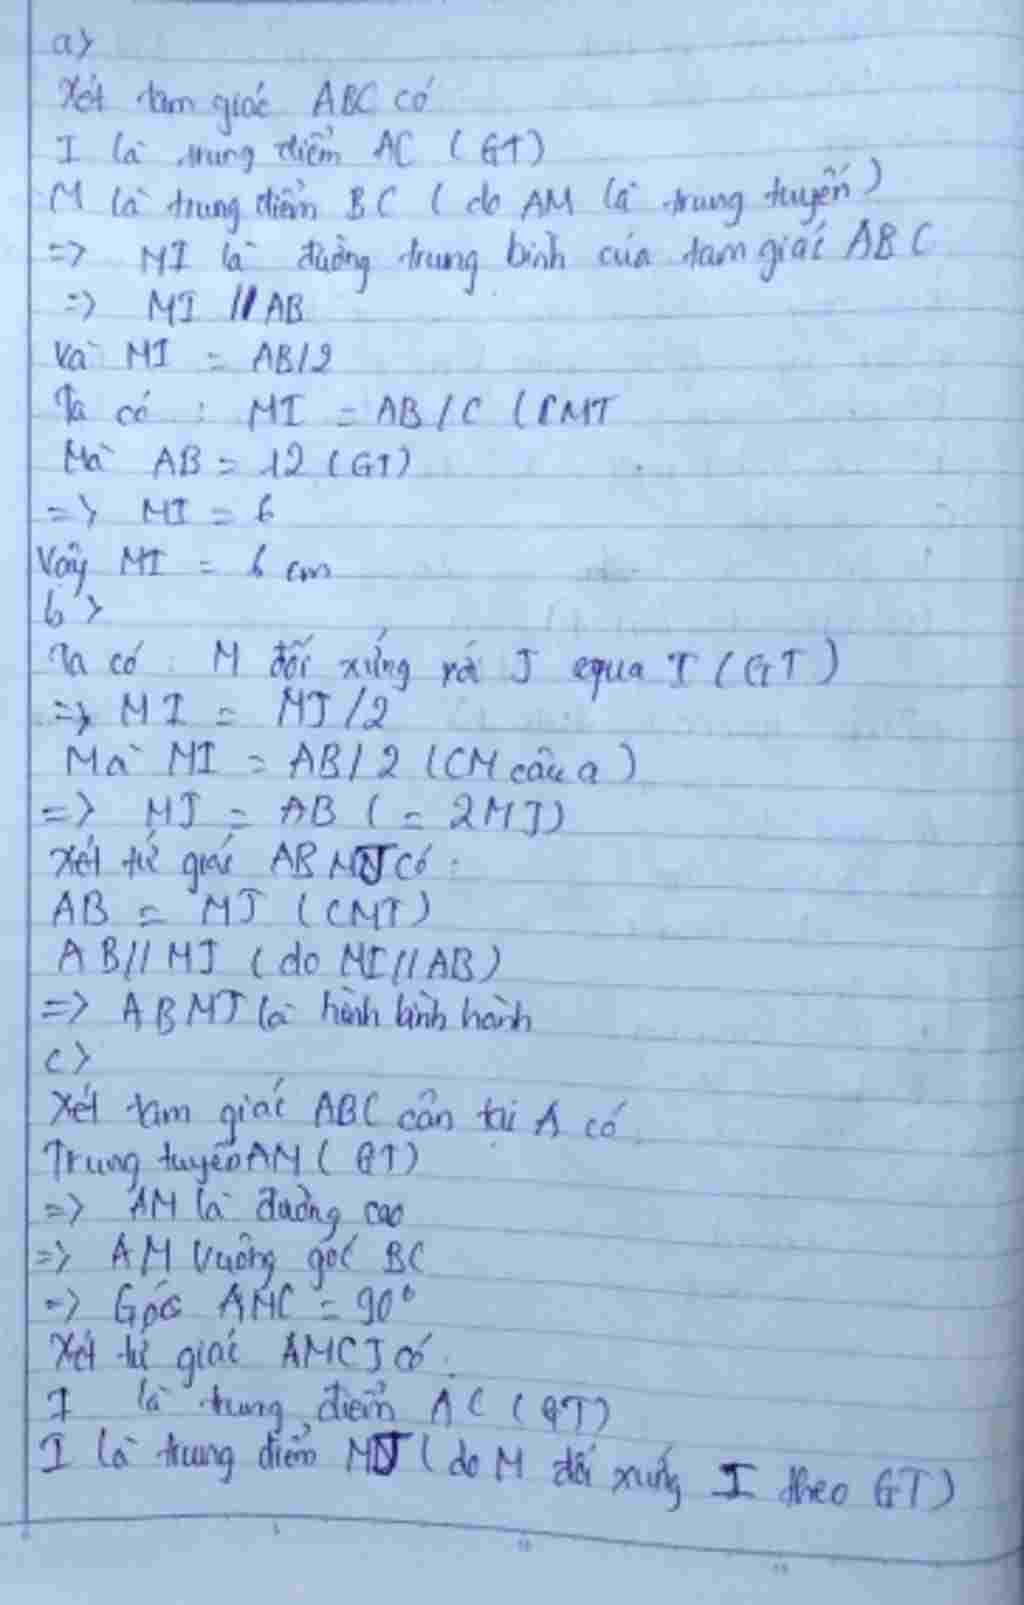 a>
Xét tam giác ABC có
I là trung điểm AC (GT)
M là trung điểm BC ( do AM là trung tuyến)
=> MI là đường trung bình của tam giác ABC
=> MI // AB
Và MI = AB/2
Ta có : MI = AB/C (CMT
Mà AB = 12 (GT)
=> MI = 6
Vậy MI = 6 cm
b>
Ta có : M đối xứng với J qua I (GT)
=> MI = MJ/2
Mà MI = AB/2 (CM câu a)
=> MJ = AB ( = 2MI)
Xét tứ giác ABMJ có :
AB = MJ (CMT)
AB // MJ (do MI//AB)
=> ABMJ là hình bình hành
c>
Xét tam giác ABC cân tại A có
Trung tuyến AM ( GT)
=> AM là đường cao
=> AM vuông góc BC
=> Góc AMC = 90°
Xét tứ giác AMCJ có :
I là trung điểm AC (GT)
I là trung điểm MJ (do M đối xứng I theo GT)